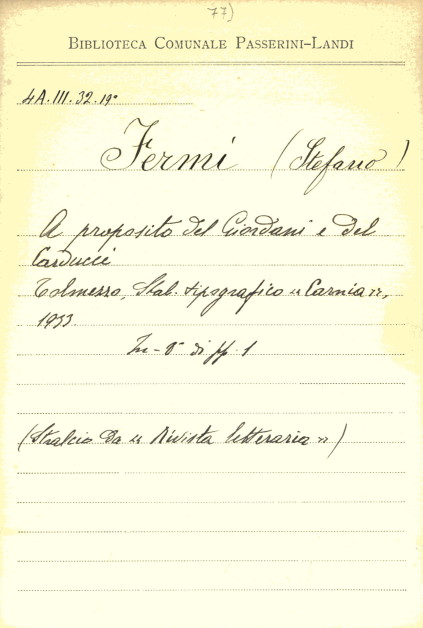 77)
BIBLIOTECA COMUNALE PASSERINI-LANDI
4A.III.32.19°
Fermi (Stefano)
A proposito del Giordani e del
Carducci
Tolmezzo, Stab. tipografico «Carnia»,
1933.
In-8° di pp. 1
(Stralcio da «Rivista letteraria»)